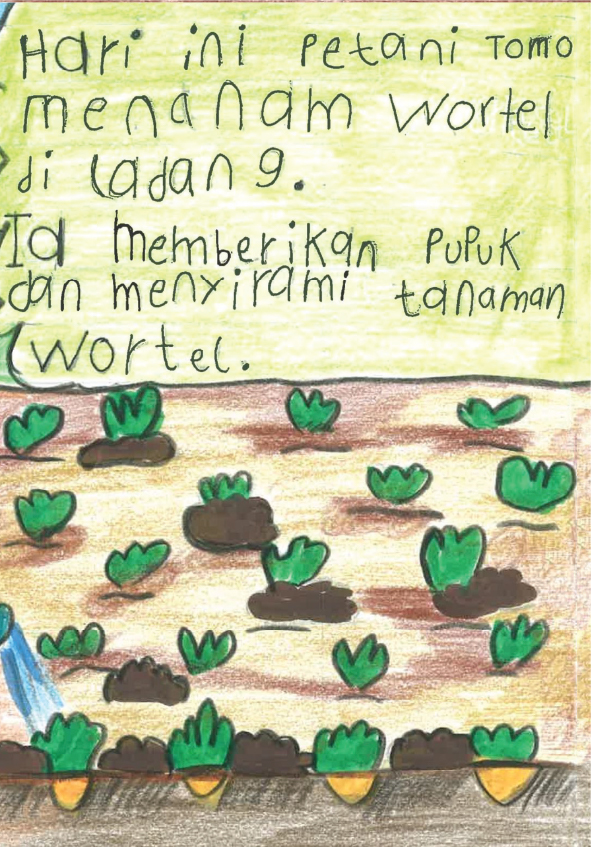 Hari ini Petani Tomo
menanam wortel
di ladang.
Ia memberikan pupuk
dan menyirami tanaman
wortel.